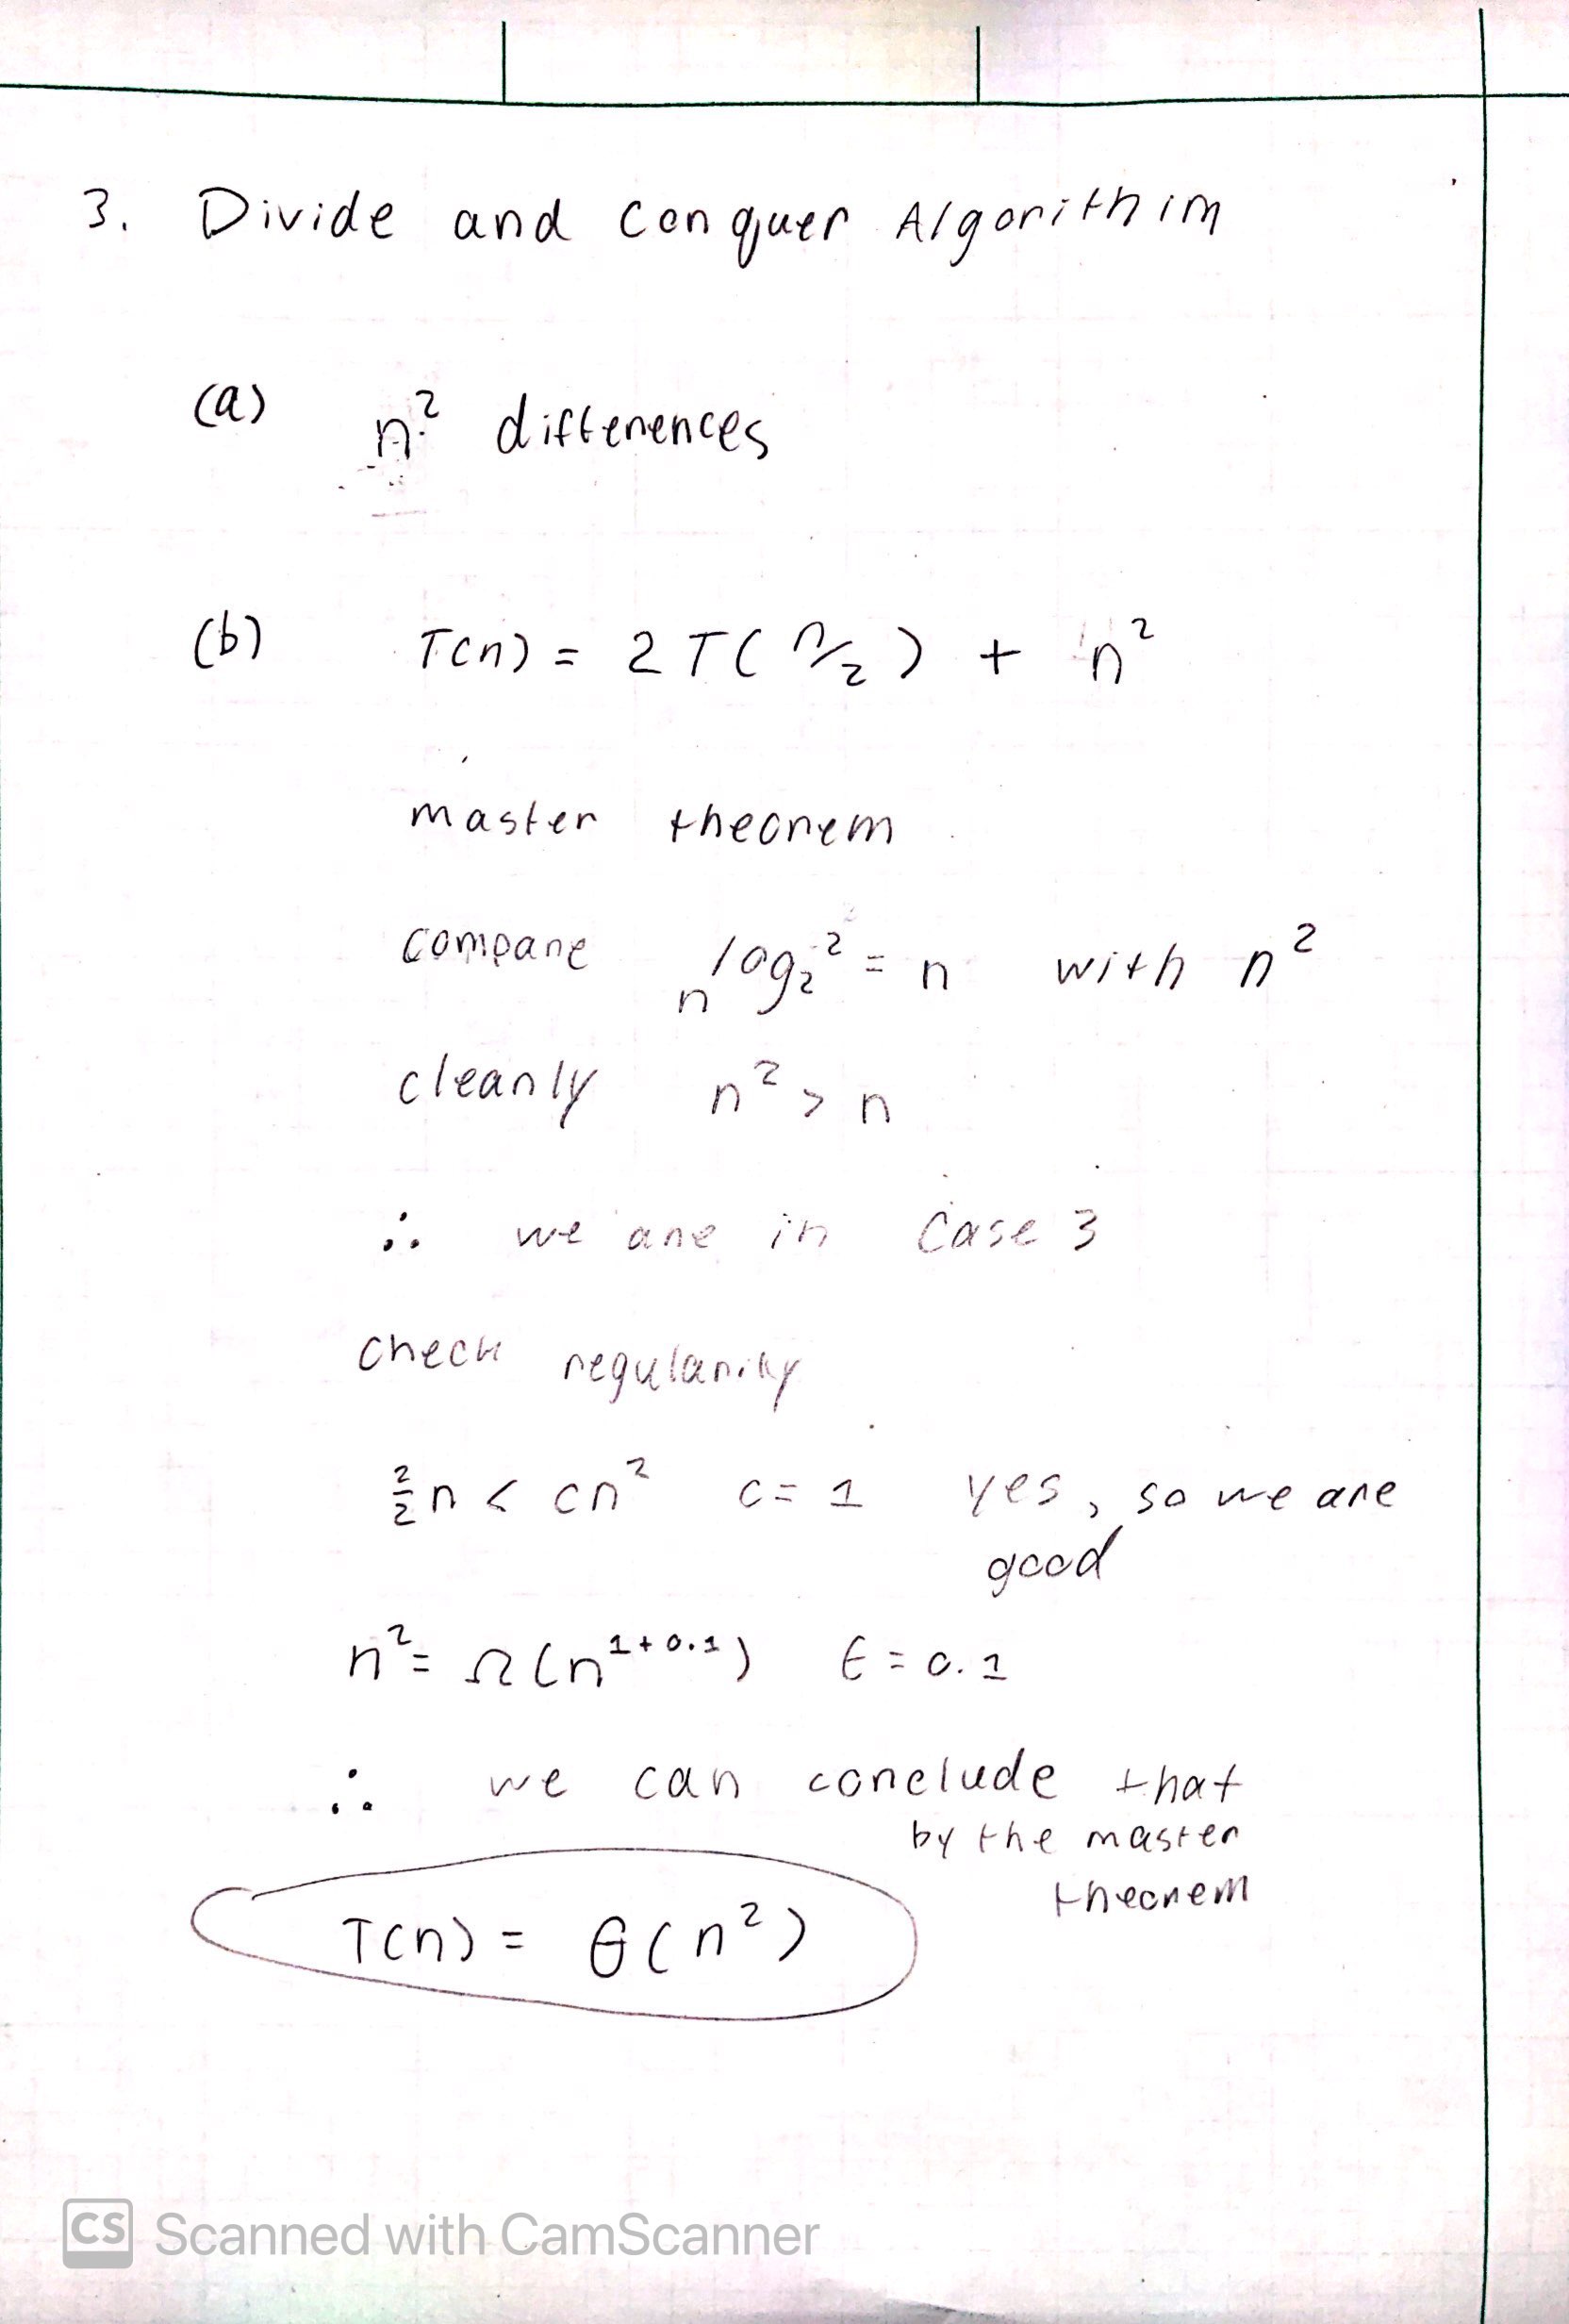 3. Divide and Conquer Algorithim
(a) n² differences
(b) T(n) = 2T(n/2) + n²
master theorem
compare n^log₂2 = n with n²
clearly n² > n
∴ we are in Case 3
check regularity
2/2 n < cn² c = 1 yes, so we are
good
n² = Ω(n^1+0.1) ϵ = 0.1
∴ we can conclude that
by the master
theorem
T(n) = Θ(n²)
CS Scanned with CamScanner